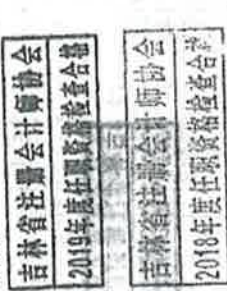 吉林省注册会计师协会
2019年度任职资格检查合格
吉林省注册会计师协会
2018年度任职资格检查合